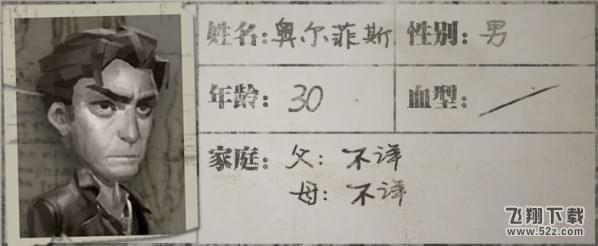 姓名:奥尔菲斯 性别:男
年龄: 30 血型: /
家庭: 父: 不详
母: 不详
飞翔下载
www.52z.com